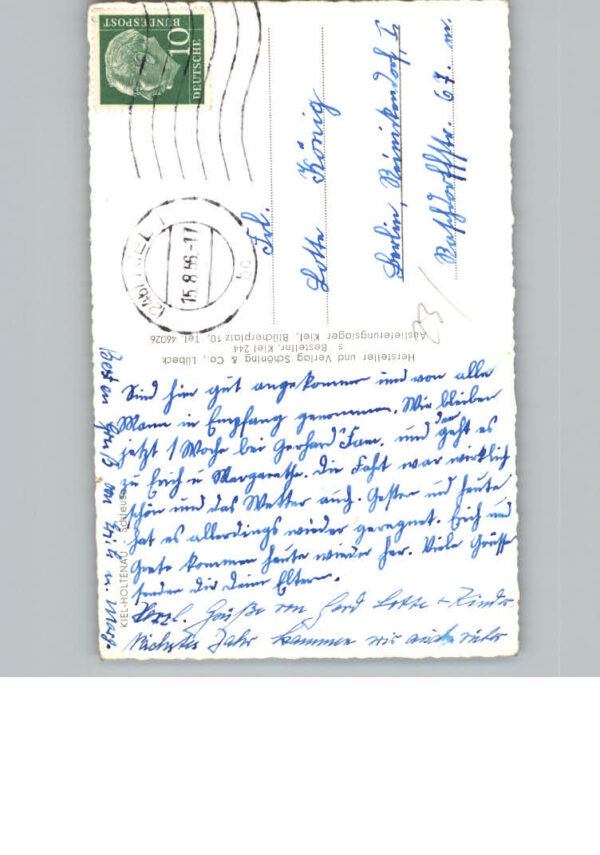 DEUTSCHE
BUNDESPOST
10
KIEL 1
15.8.56.-17
Frl.
Lotte König
Berlin, Reinickendorf I
67
Hersteller und Verlag Schöning & Co., Lübeck
s Bestellnr. Kiel 244
Auslieferungslager Kiel, Blücherplatz 10, Tel. 46026
KIEL-HOLTENAU · Schleuse
Sind hier gut angekommen und von aller
Mann in Empfang genommen. Wir bleiben
jetzt 1 Woche bei Gerhard Fam. und dan geht es
zu Erich u Margarethe. Die Faht war wirklich
schön und das Wetter auch. Gestern und heute
hat es allerdings wieder geregnet. Erich und
Grete kommen heute wieder her. Viele Grüsse
senden Dir Deine Eltern.
Herzl. Grüße von Gerd Lotte + Kinder
Nächstes Jahr kommen wir
Besten Gruß von